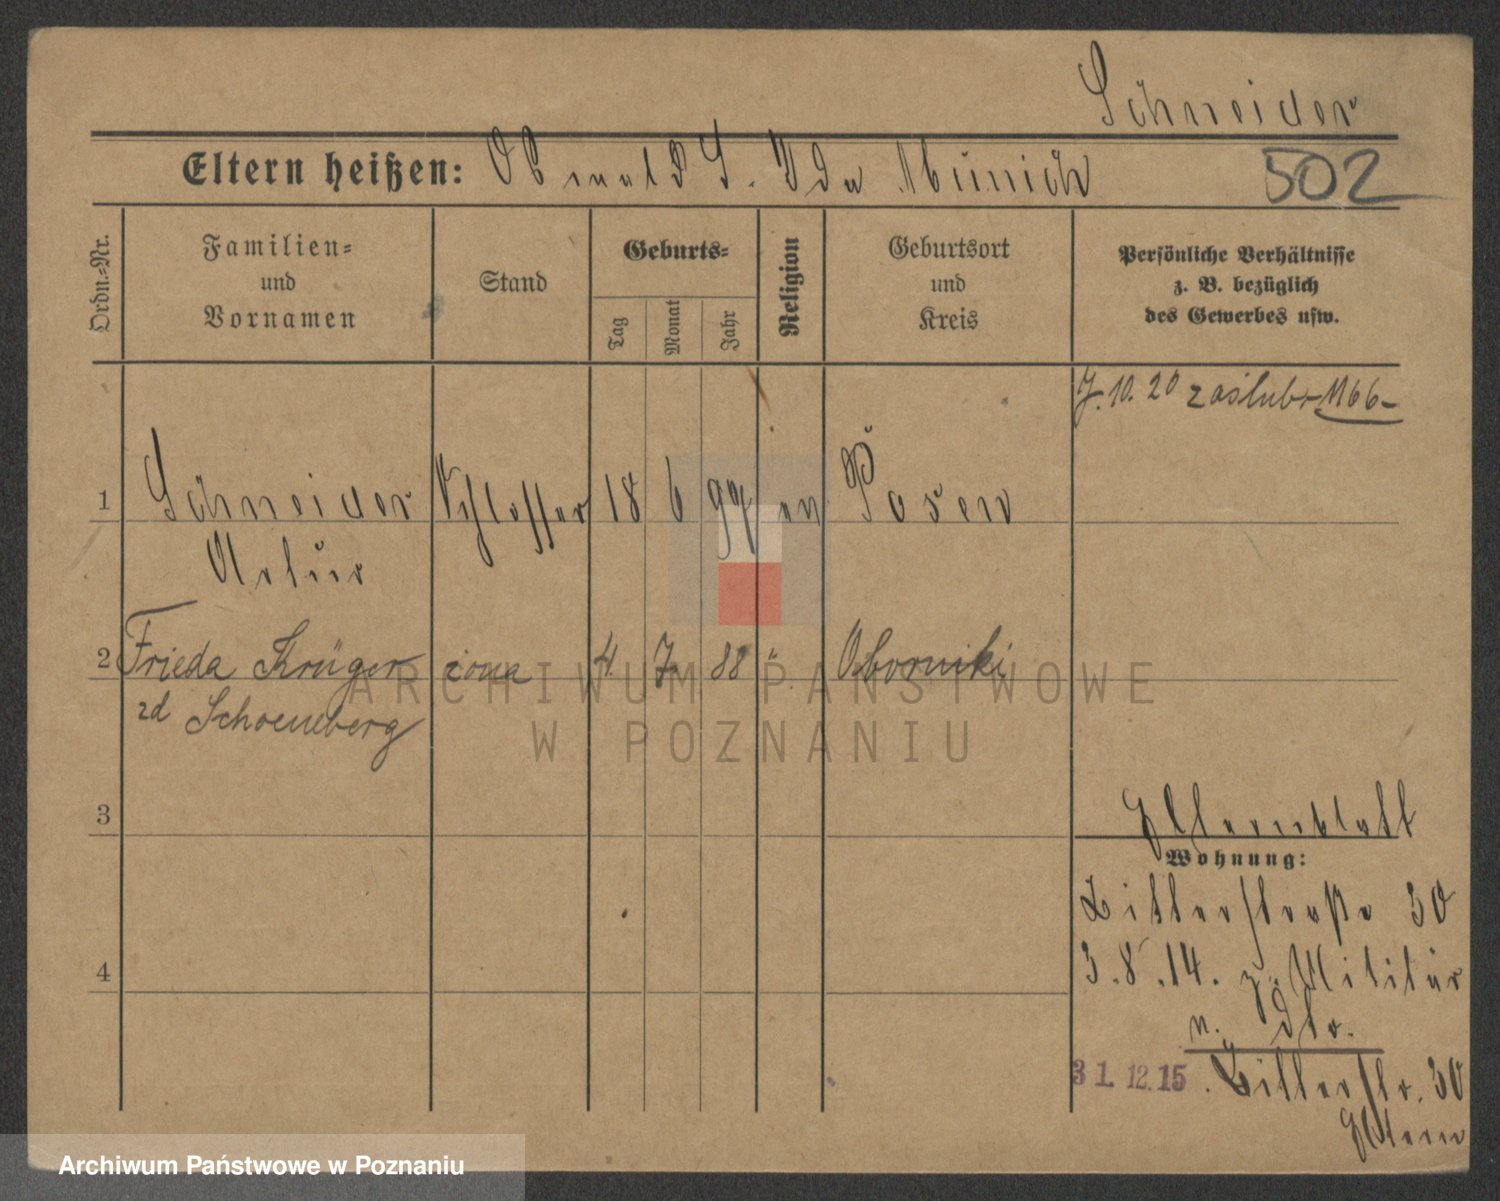 Schneider
Eltern heißen: Oswald S. Ida Münich
502
Ordn.=Nr.
Familien=
und
Vornamen
Stand
Geburts=
Tag
Monat
Jahr
Religion
Geburtsort
und
Kreis
Persönliche Verhältnisse
z. B. bezüglich
des Gewerbes usw.
7.10.20 zaślub. 1166-
1 Schneider Schlosser 18 6 94 ev Posen
Artur
2 Frieda Krüger żona 4. 7. 88 ". Oborniki
zd Schoenberg
3
Elternblatt
Wohnung:
Bitterstraße 30
4
3.8.14. z. Militär
n.
31.12.15. Bitterstr. 30
Eltern
ARCHIWUM PAŃSTWOWE
W POZNANIU
Archiwum Państwowe w Poznaniu